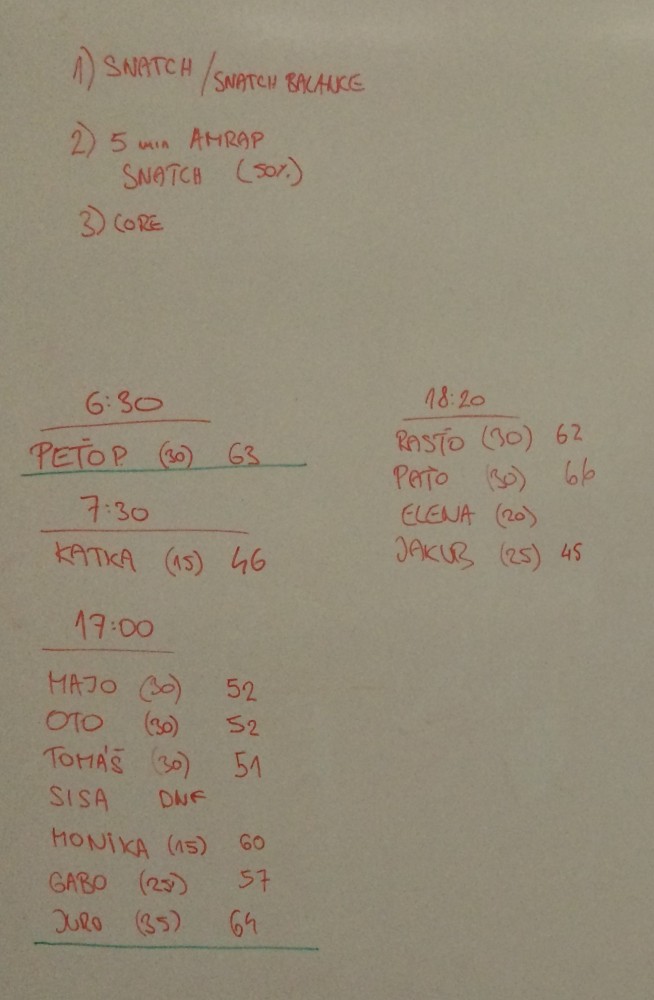 1) SNATCH / SNATCH BALANCE
2) 5 min AMRAP
SNATCH (50%)
3) CORE
6:30
PEŤO P. (30) 63
7:30
KATKA (15) 46
17:00
MAJO (30) 52
OTO (30) 52
TOMÁŠ (30) 51
SISA DNF
MONIKA (15) 60
GABO (25) 57
JURO (35) 64
18:20
RASŤO (30) 62
PAŤO (30) 66
ELENA (20)
JAKUB (25) 45